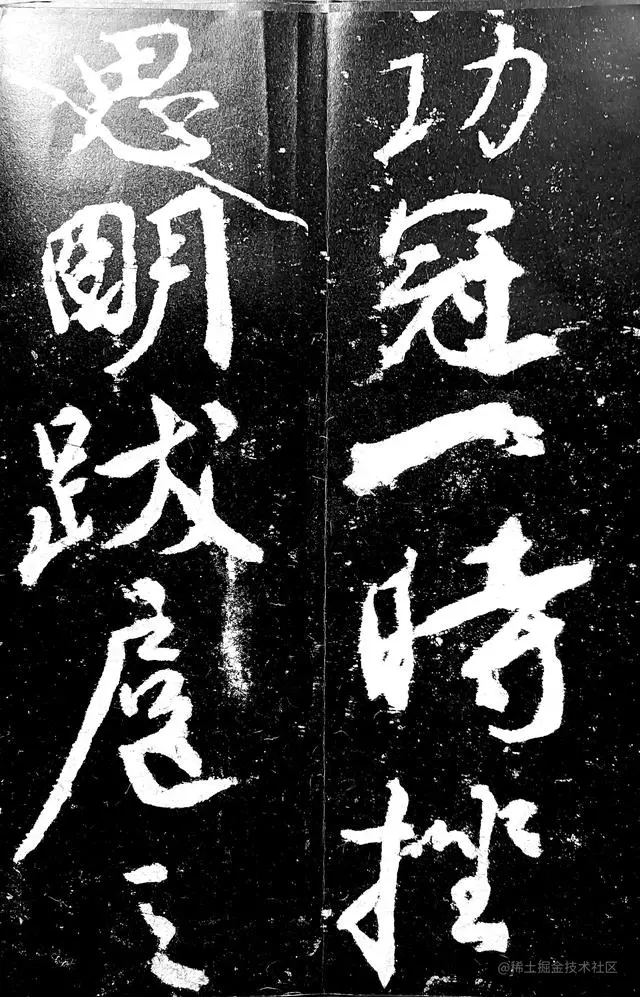 功冠一時挫
思明跋扈之
@稀土掘金技术社区